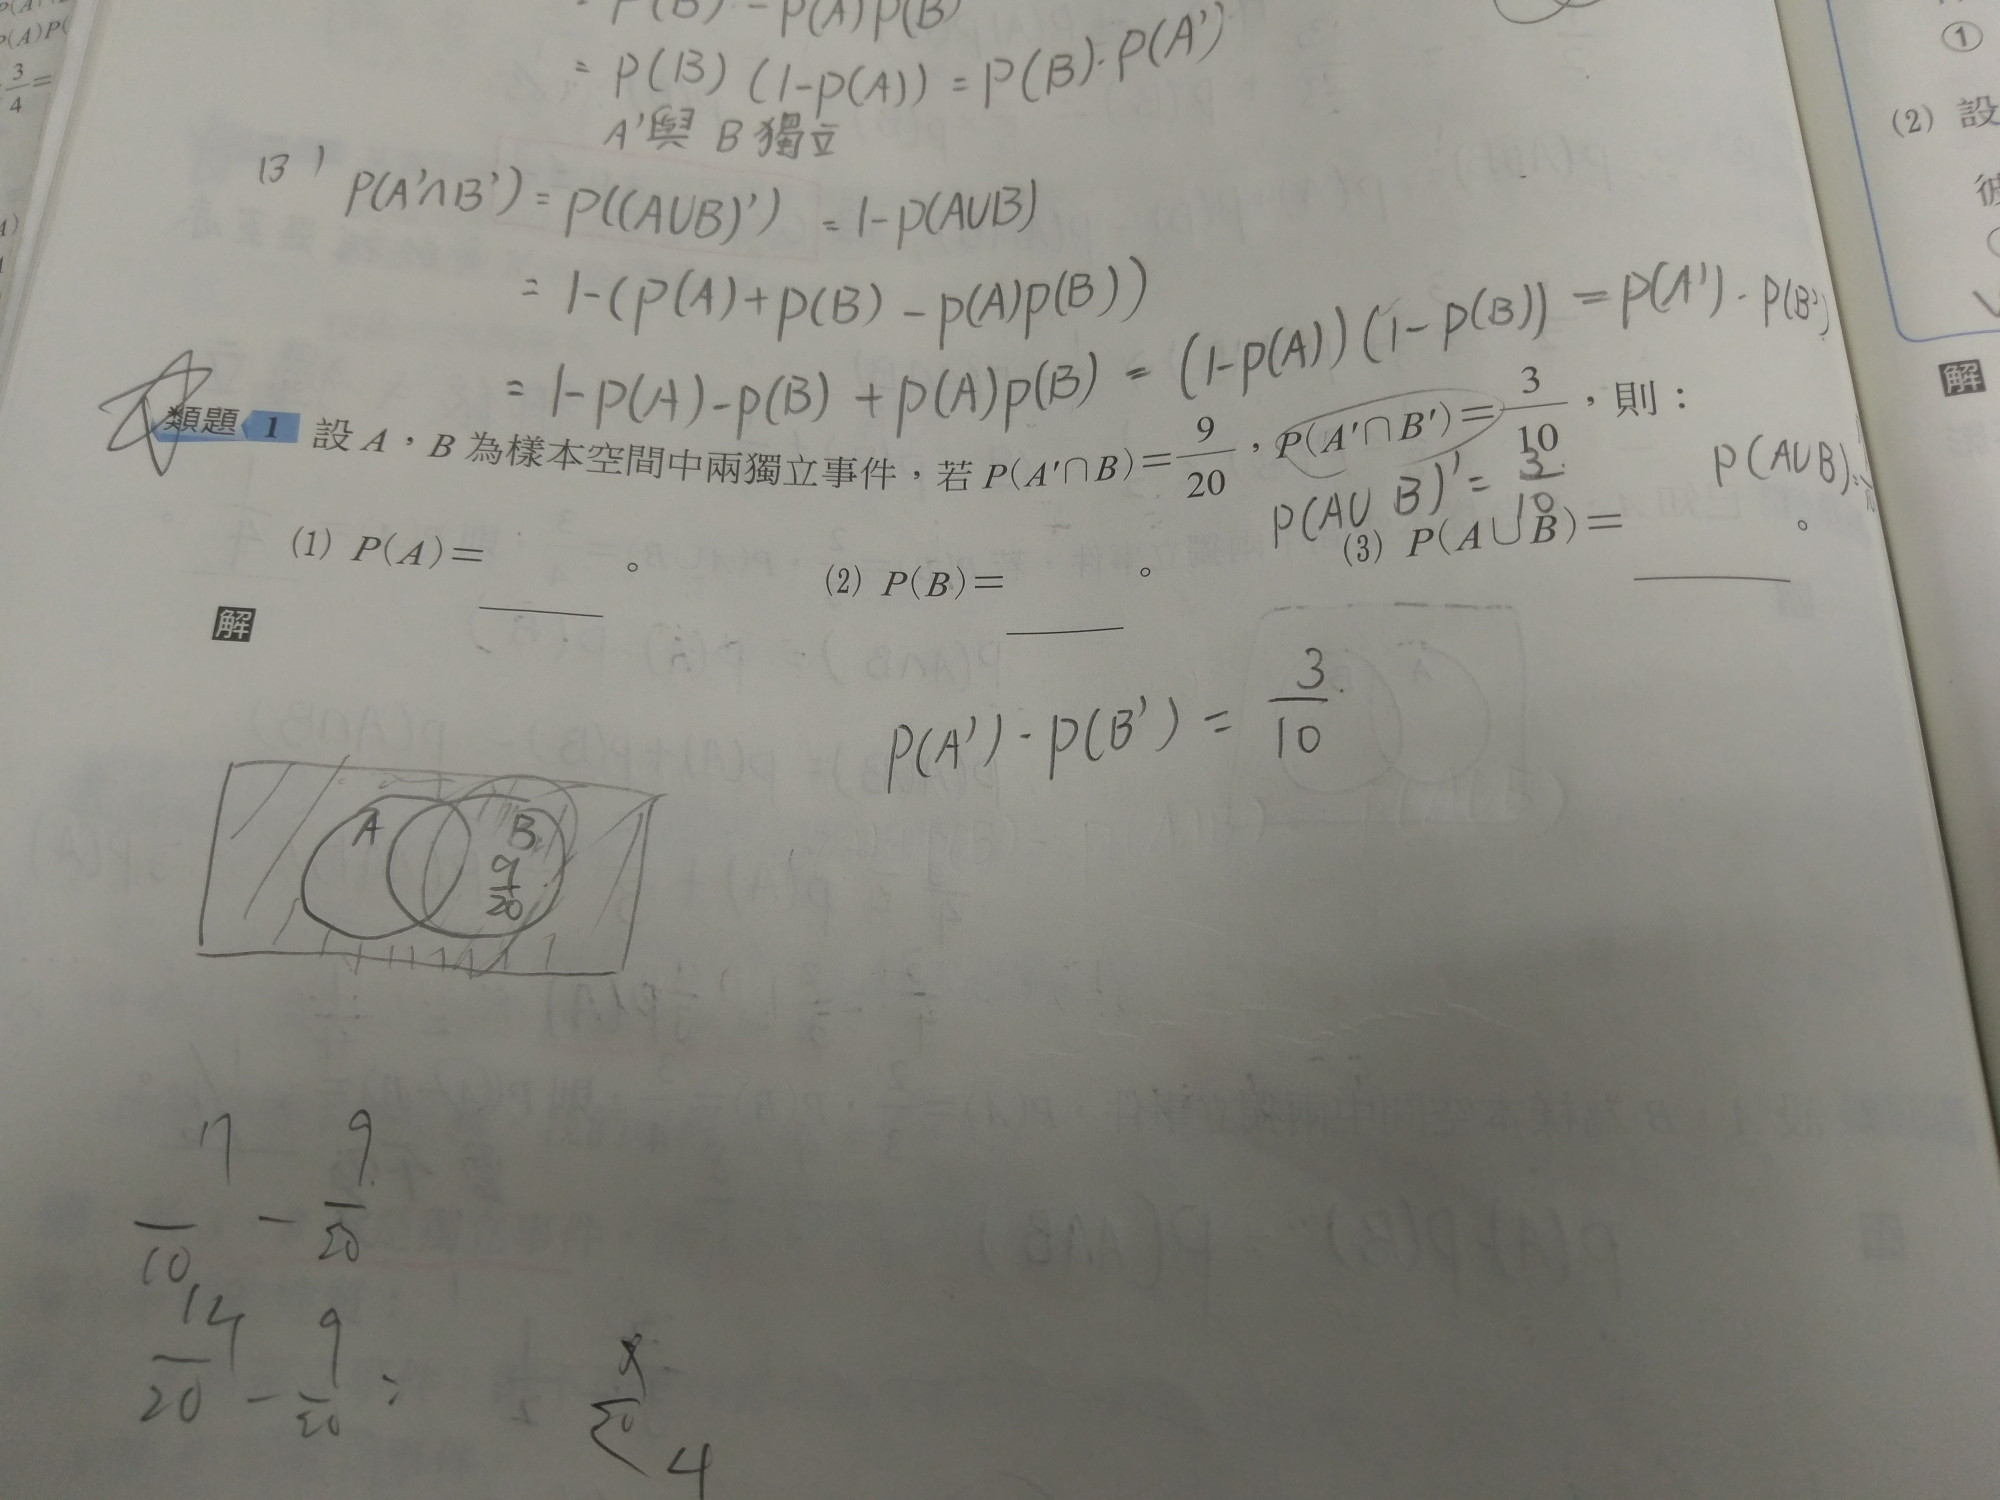 = P(B) - P(A)P(B)
= P(B) (1-P(A)) = P(B)·P(A')
A'與 B 獨立
(3) P(A'∩B') = P((A∪B)') = 1-P(A∪B)
= 1-(P(A)+P(B) - P(A)P(B))
= 1-P(A)-P(B) + P(A)P(B) = (1-P(A))(1-P(B)) = P(A')·P(B')
類題 1 設 A，B 為樣本空間中兩獨立事件，若 P(A'∩B)=9/20，P(A'∩B')=3/10，則：
P(A∪B)' = 3/10
P(A∪B)=
(1) P(A)=＿＿。 (2) P(B)=＿＿。 (3) P(A∪B)=＿＿。
解
P(A')·P(B') = 3/10
A B
9/20
7/10 - 9/20
14/20 - 9/20 =
4
3/4 =
①
(2) 設
解